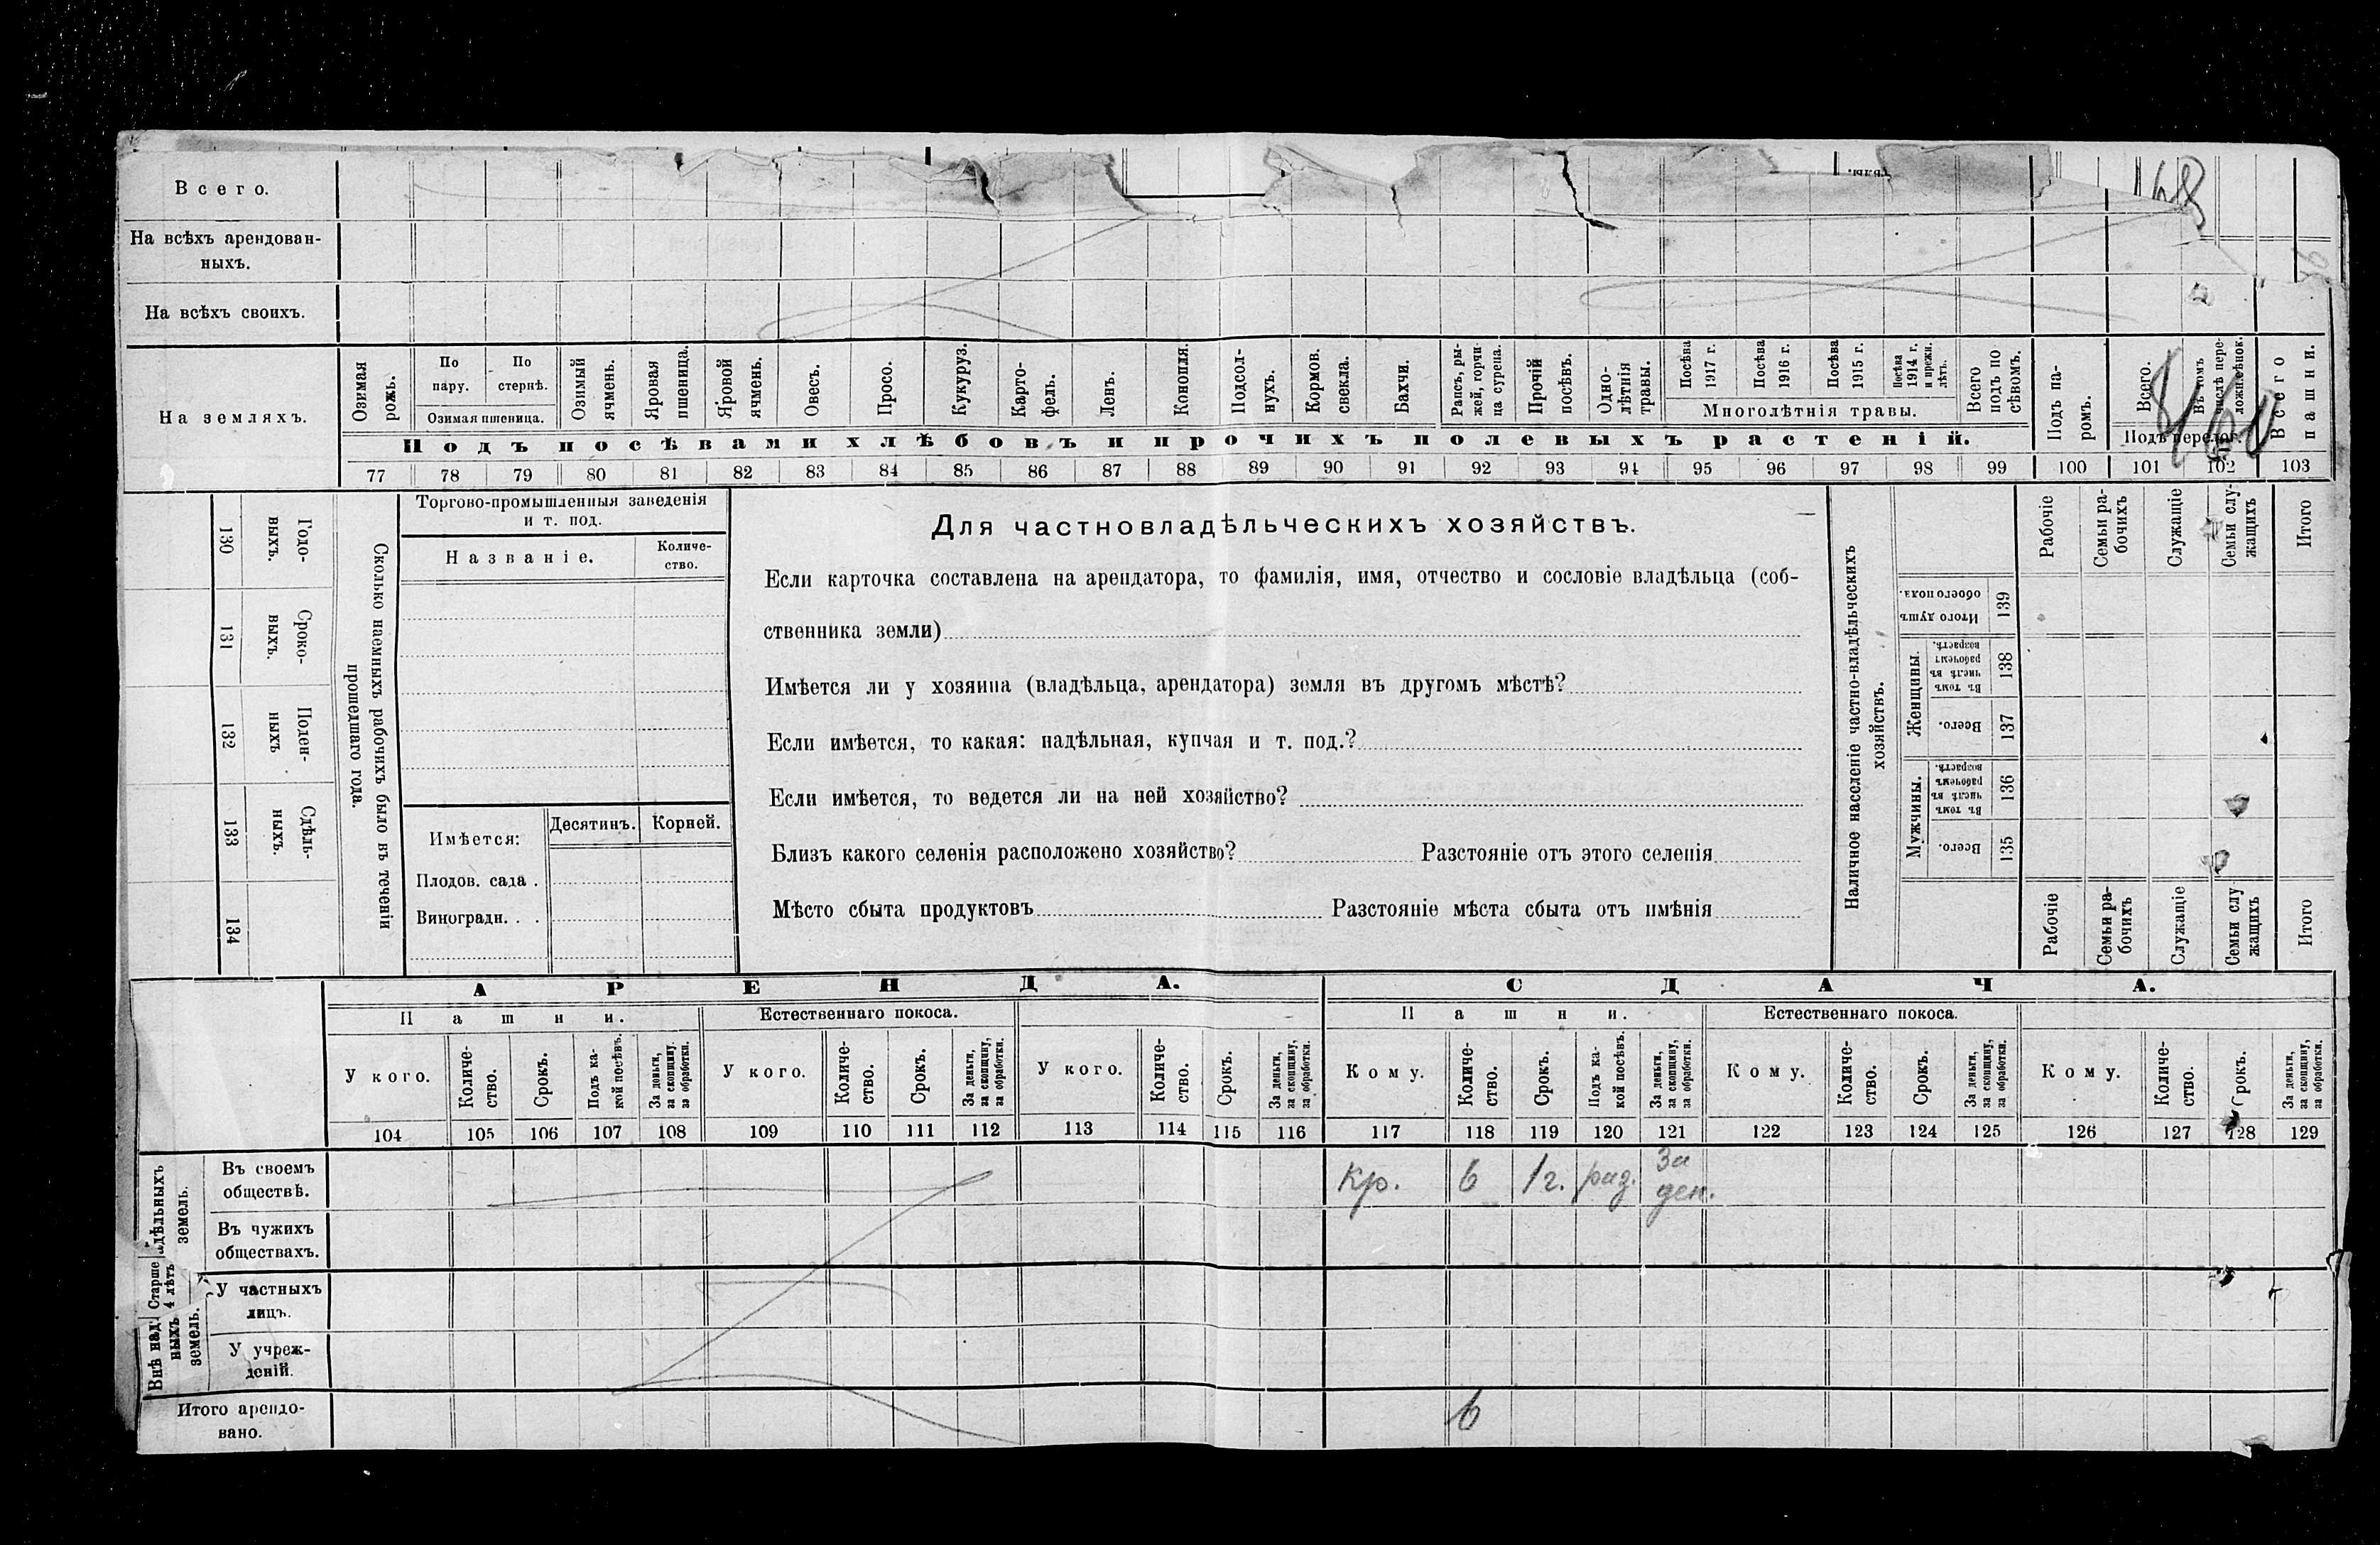 Всего.
На всѣхъ арендован-
ныхъ.
На всѣхъ своихъ.
На земляхъ.
Озимая
рожь.
По
пару.
По
стернѣ.
Озимая пшеница.
Озимый
ячмень.
Яровая
пшеница.
Яровой
ячмень.
Овесъ.
Просо.
Кукуруз.
Карто-
фель.
Ленъ.
Конопля.
Подсол-
нухъ.
Кормов.
свекла.
Бахчи.
Рапсъ, ры-
жей, горчи-
ца сурепа.
Прочій
посѣвъ.
Одно-
лѣтнія
травы.
Посѣва
1917 г.
Посѣва
1916 г.
Посѣва
1915 г.
Посѣва
1914 г.
и прежн.
лѣтъ.
Многолѣтнія травы.
Всего
подъ по
сѣвомъ.
Подъ па-
ромъ.
Всего.
Въ томъ
числѣ пере-
Подъ перелог.
Всего
пашни.
Подъ посѣвами хлѣбовъ и прочихъ полевыхъ растеній.
77 78 79 80 81 82 83 84 85 86 87 88 89 90 91 92 93 94 95 96 97 98 99 100 101 102 103
130
Годо-
выхъ.
131
Сроко-
выхъ.
132
Поден-
ныхъ
133
Сдѣль-
ныхъ.
134
Сколько наемныхъ рабочихъ было въ теченіи
прошедшаго года.
Торгово-промышленныя заведенія
и т. под.
Названіе.
Количе-
ство.
Имѣется:
Десятинъ.
Корней.
Плодов. сада .
Виноградн. . .
Для частновладѣльческихъ хозяйствъ.
Если карточка составлена на арендатора, то фамилія, имя, отчество и сословіе владѣльца (соб-
ственника земли)
Имѣется ли у хозяина (владѣльца, арендатора) земля въ другомъ мѣстѣ?
Если имѣется, то какая: надѣльная, купчая и т. под.?
Если имѣется, то ведется ли на ней хозяйство?
Близъ какого селенія расположено хозяйство? Разстояніе отъ этого селенія
Мѣсто сбыта продуктовъ Разстояніе мѣста сбыта отъ имѣнія
Наличное населеніе частно-владѣльческихъ
хозяйствъ.
Рабочіе
Семьи ра-
бочихъ
Служащіе
Семьи слу-
жащихъ
Итого
Итого душъ
обоего пола.
139
Женщины.
Въ томъ
числѣ въ
рабочемъ
возрастѣ.
138
Всего.
137
Мужчины.
Въ томъ
числѣ въ
рабочемъ
возрастѣ.
136
Всего.
135
Рабочіе
Семьи ра-
бочихъ
Служащіе
Семьи слу
жащихъ
Итого
АРЕНДА.
Пашни.
Естественнаго покоса.
У кого.
Количе-
ство.
Срокъ.
Подъ ка-
кой посѣвъ.
За деньги,
за скопщину,
за обработки.
У кого.
Количе-
ство.
Срокъ.
За деньги,
за скопщину,
за обработки.
У кого.
Количе-
ство.
Срокъ.
За деньги,
за скопщину,
за обработки.
СДАЧА.
Пашни.
Естественнаго покоса.
Кому.
Количе-
ство.
Срокъ.
Подъ ка-
кой посѣвъ.
За деньги,
за скопщину,
за обработки.
Кому.
Количе-
ство.
Срокъ.
За деньги,
за скопщину,
за обработки.
Кому.
Количе-
ство.
Срокъ.
За деньги,
за скопщину,
за обработки.
104 105 106 107 108 109 110 111 112 113 114 115 116 117 118 119 120 121 122 123 124 125 126 127 128 129
дѣльныхъ
земель.
Въ своемъ
обществѣ.
Кр. 6 1 г. раз. За
ден.
Въ чужихъ
обществахъ.
Старше
4 лѣтъ
Внѣ над
ныхъ
земель.
У частныхъ
лицъ.
У учреж-
деній.
Итого арендо-
вано.
6